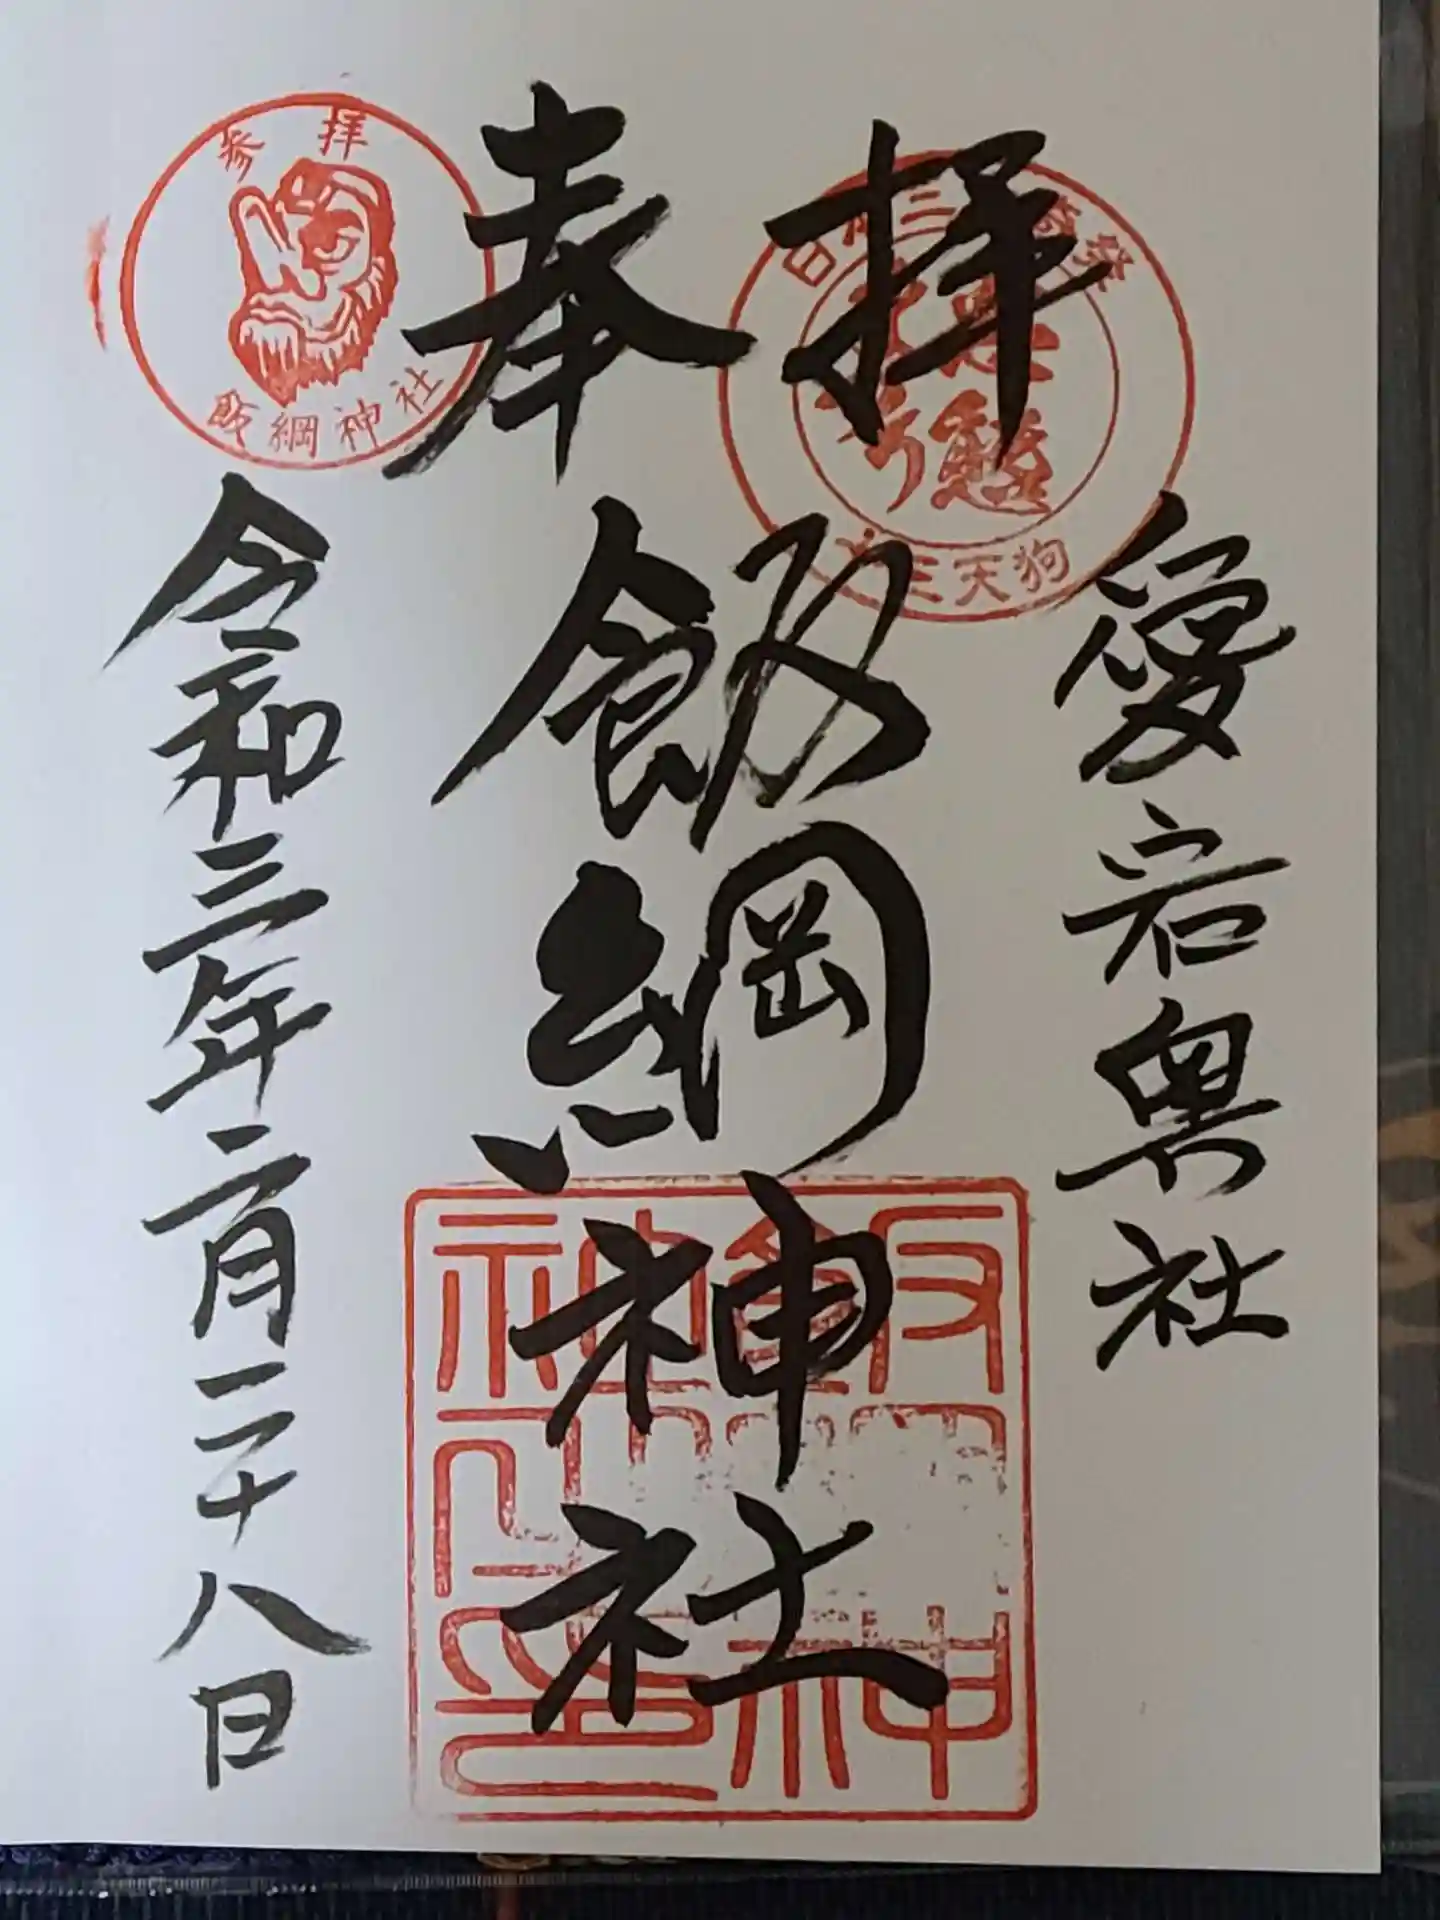 奉拝
愛宕奥社
飯綱神社
令和三年二月二十八日
参拝
飯綱神社
十三天狗